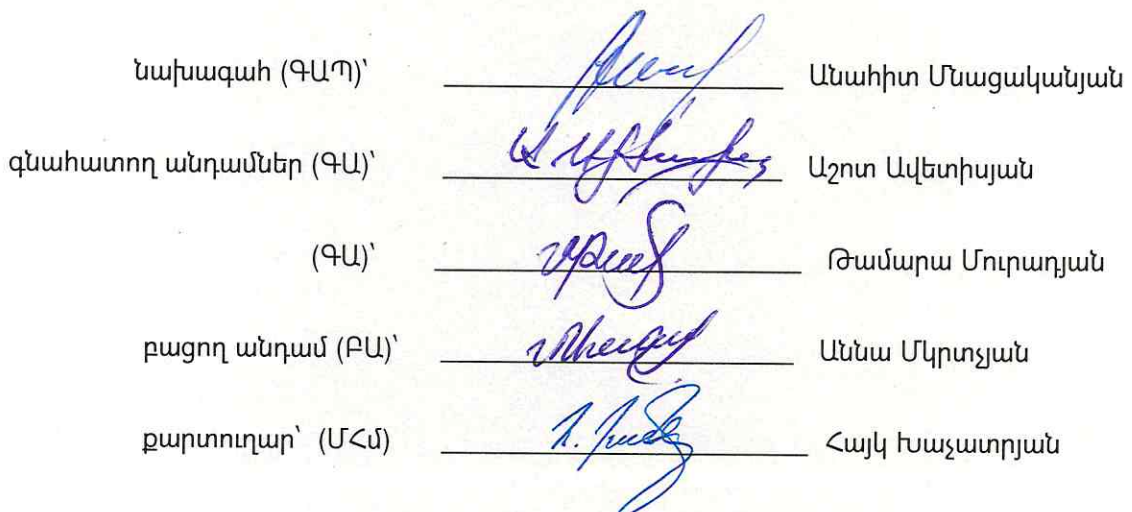 նախագահ (ԳԱՊ)՝ Անահիտ Մնացականյան
գնահատող անդամներ (ԳԱ)՝ Աշոտ Ավետիսյան
(ԳԱ)՝ Թամարա Մուրադյան
բացող անդամ (ԲԱ)՝ Աննա Մկրտչյան
քարտուղար՝ (ՄՀմ) Հայկ Խաչատրյան